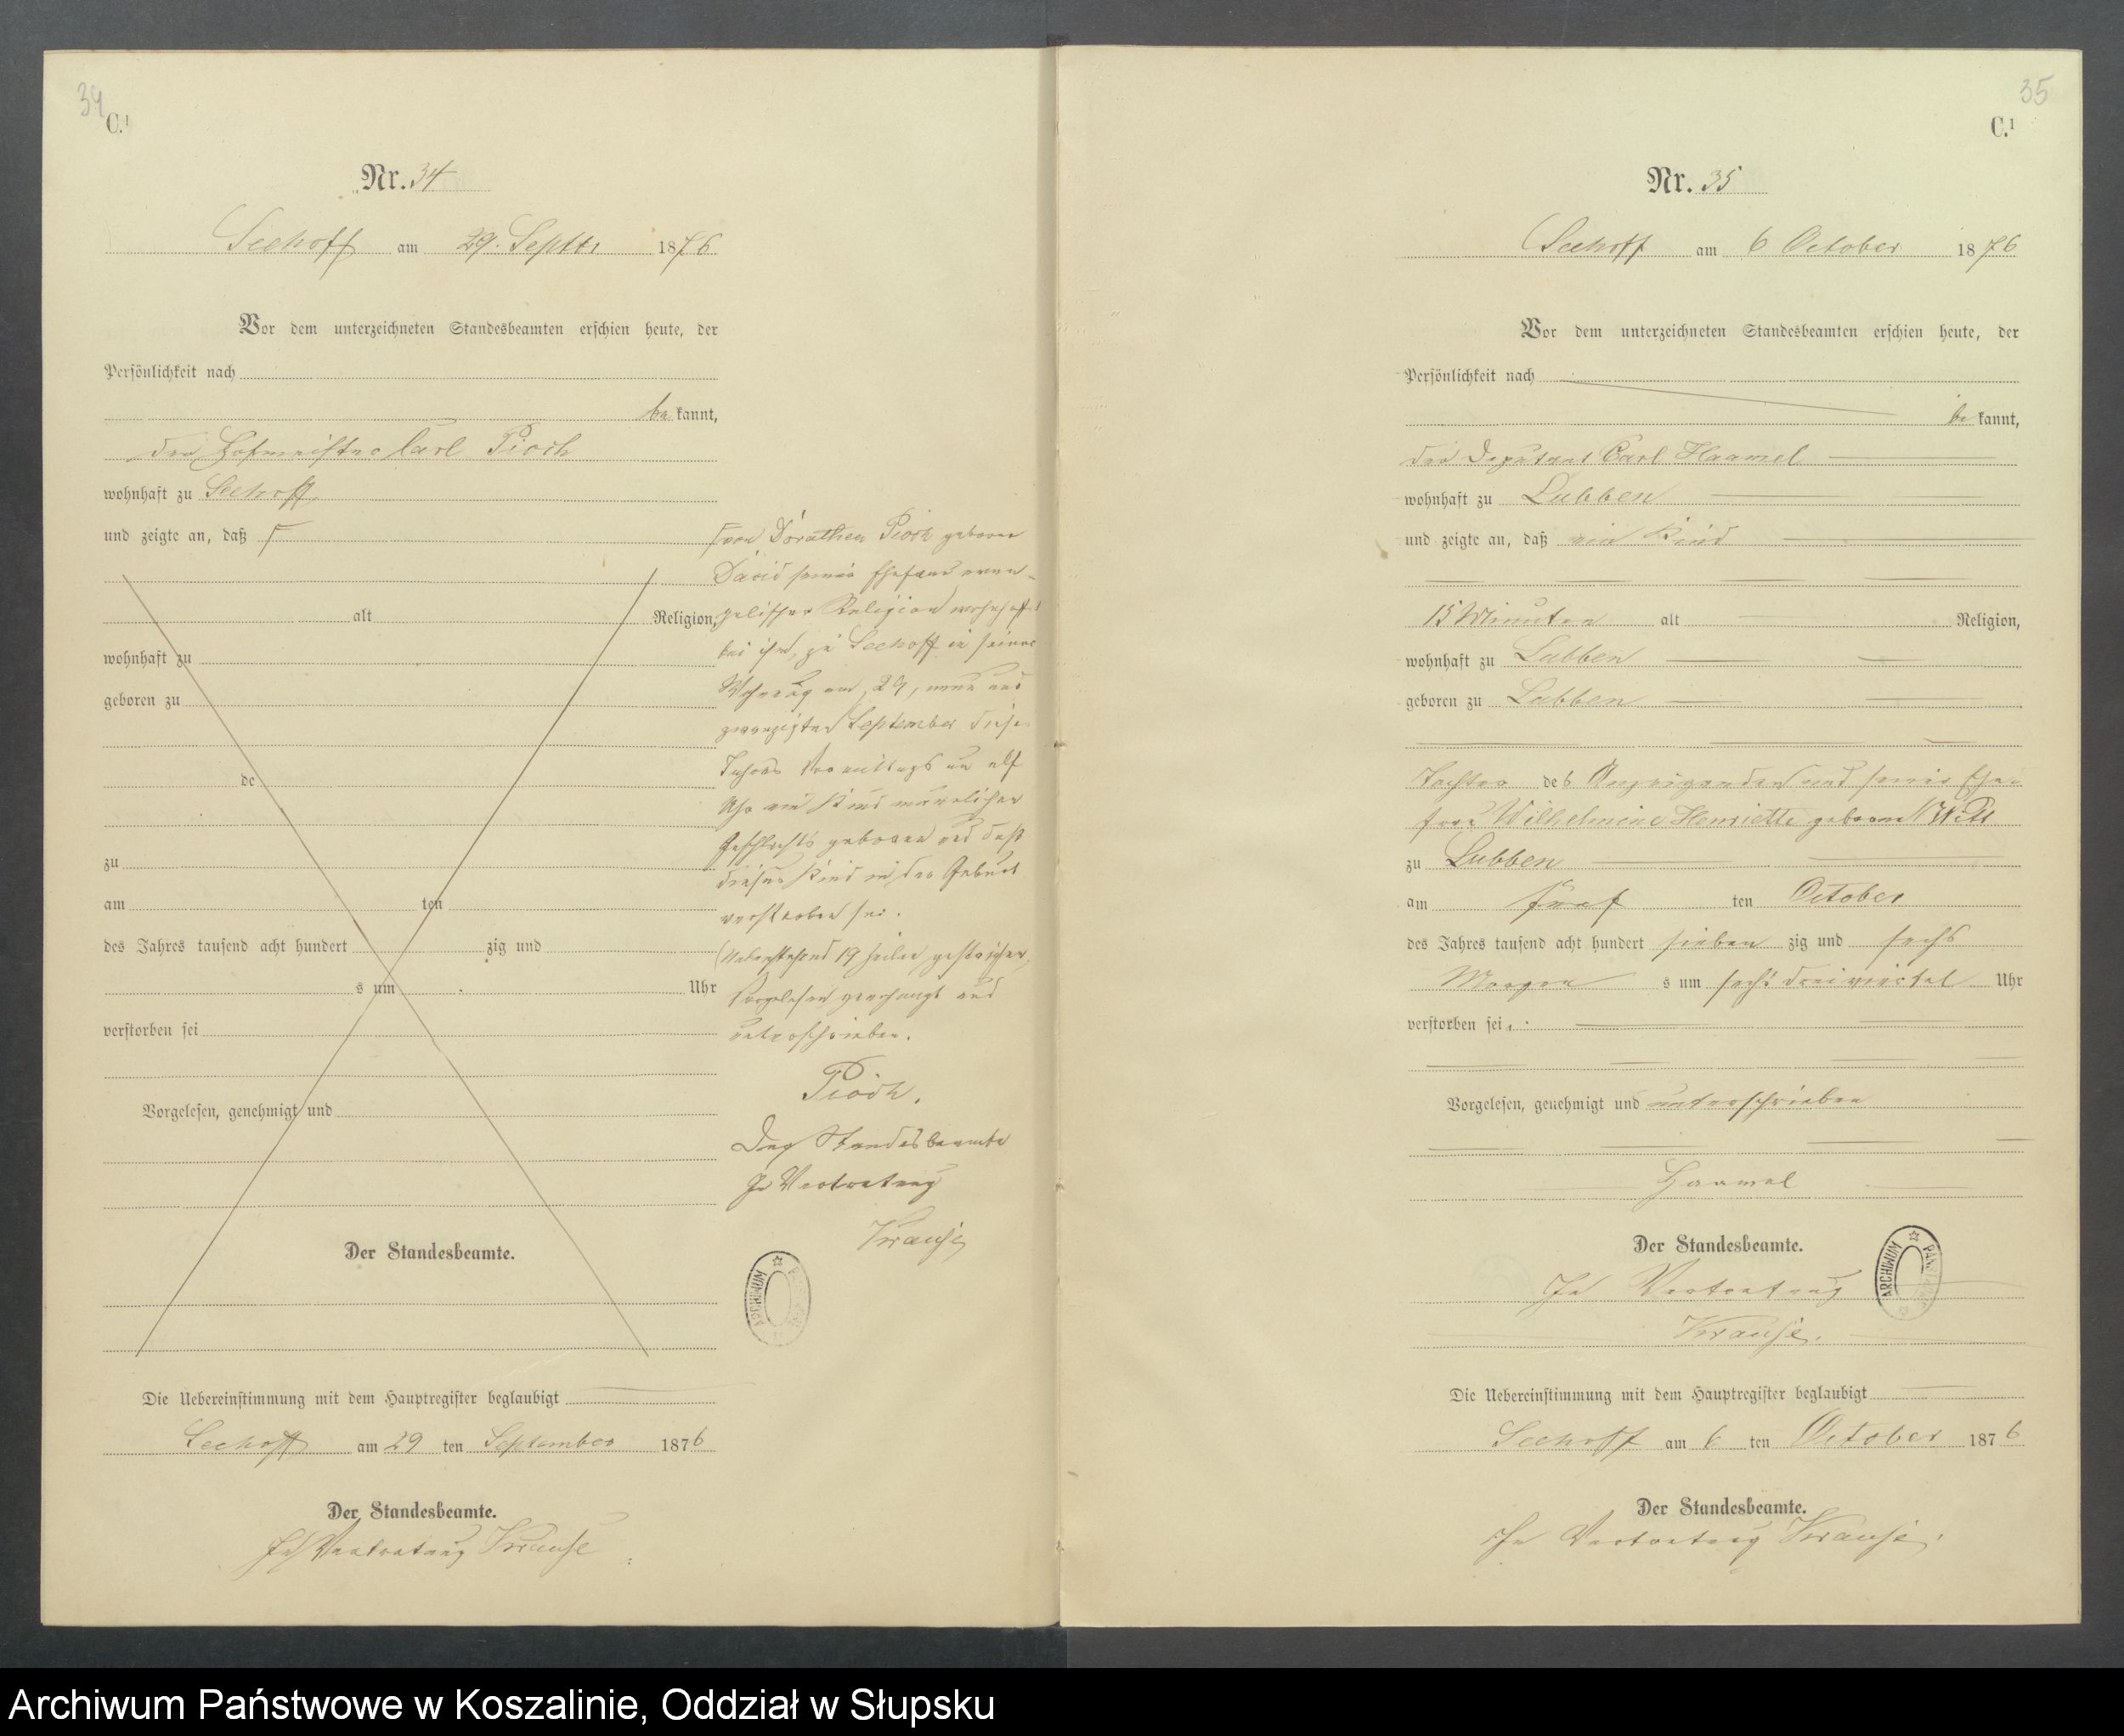 34
C.1
Nr. 34
Seehoff am 29. Septbr 1876
Vor dem unterzeichneten Standesbeamten erschien heute, der
Persönlichkeit nach
be kannt,
der Hofmeister Carl Pioch
wohnhaft zu Seehoff
und zeigte an, daß
alt Religion,
wohnhaft zu
geboren zu
de
zu
am ten
des Jahres tausend acht hundert zig und
s um Uhr
verstorben sei
Vorgelesen, genehmigt und
Der Standesbeamte.
von Dorathea Pioch geborne
David seiner Ehefrau evan-
gelischer Religion wohnhaft
bei ihm, zu Seehoff in seiner
Wohnung am 29, neun und
zwanzigten September dieses
Jahres Vormittags um elf
Uhr ein Kind männlichen
Geschlechts geboren und daß
dieses Kind in der Geburt
verstorben sei.
(Nebenstehend 19 Zeilen gestrichen.
Vorgelesen genehmigt und
unterschrieben.
Pioch.
Der Standesbeamte
In Vertretung
Krause
ARCHIWUM
Die Uebereinstimmung mit dem Hauptregister beglaubigt
Seehoff am 29 ten September 1876
Der Standesbeamte.
In Vertretung Krause
35
C.1
Nr. 35
Seehoff am 6 October 1876
Vor dem unterzeichneten Standesbeamten erschien heute, der
Persönlichkeit nach
be kannt,
der Deputant Carl Haamel
wohnhaft zu Lubben
und zeigte an, daß ein Kind
15 Minuten alt Religion,
wohnhaft zu Lubben
geboren zu Lubben
Tochter des Anzeigenden und seiner Ehe-
frau Wilhelmine Henriette geborne Witt
zu Lubben
am fünf ten October
des Jahres tausend acht hundert sieben zig und sechs
Morgen s um sechs dreiviertel Uhr
verstorben sei.
Vorgelesen, genehmigt und unterschrieben
Haamel
Der Standesbeamte.
In Vertretung
Krause.
ARCHIWUM
Die Uebereinstimmung mit dem Hauptregister beglaubigt
Seehoff am 6 ten October 1876
Der Standesbeamte.
In Vertretung Krause.
Archiwum Państwowe w Koszalinie, Oddział w Słupsku